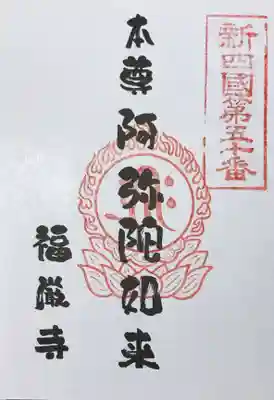 新四國第五十番
本尊阿弥陀如来
福厳寺